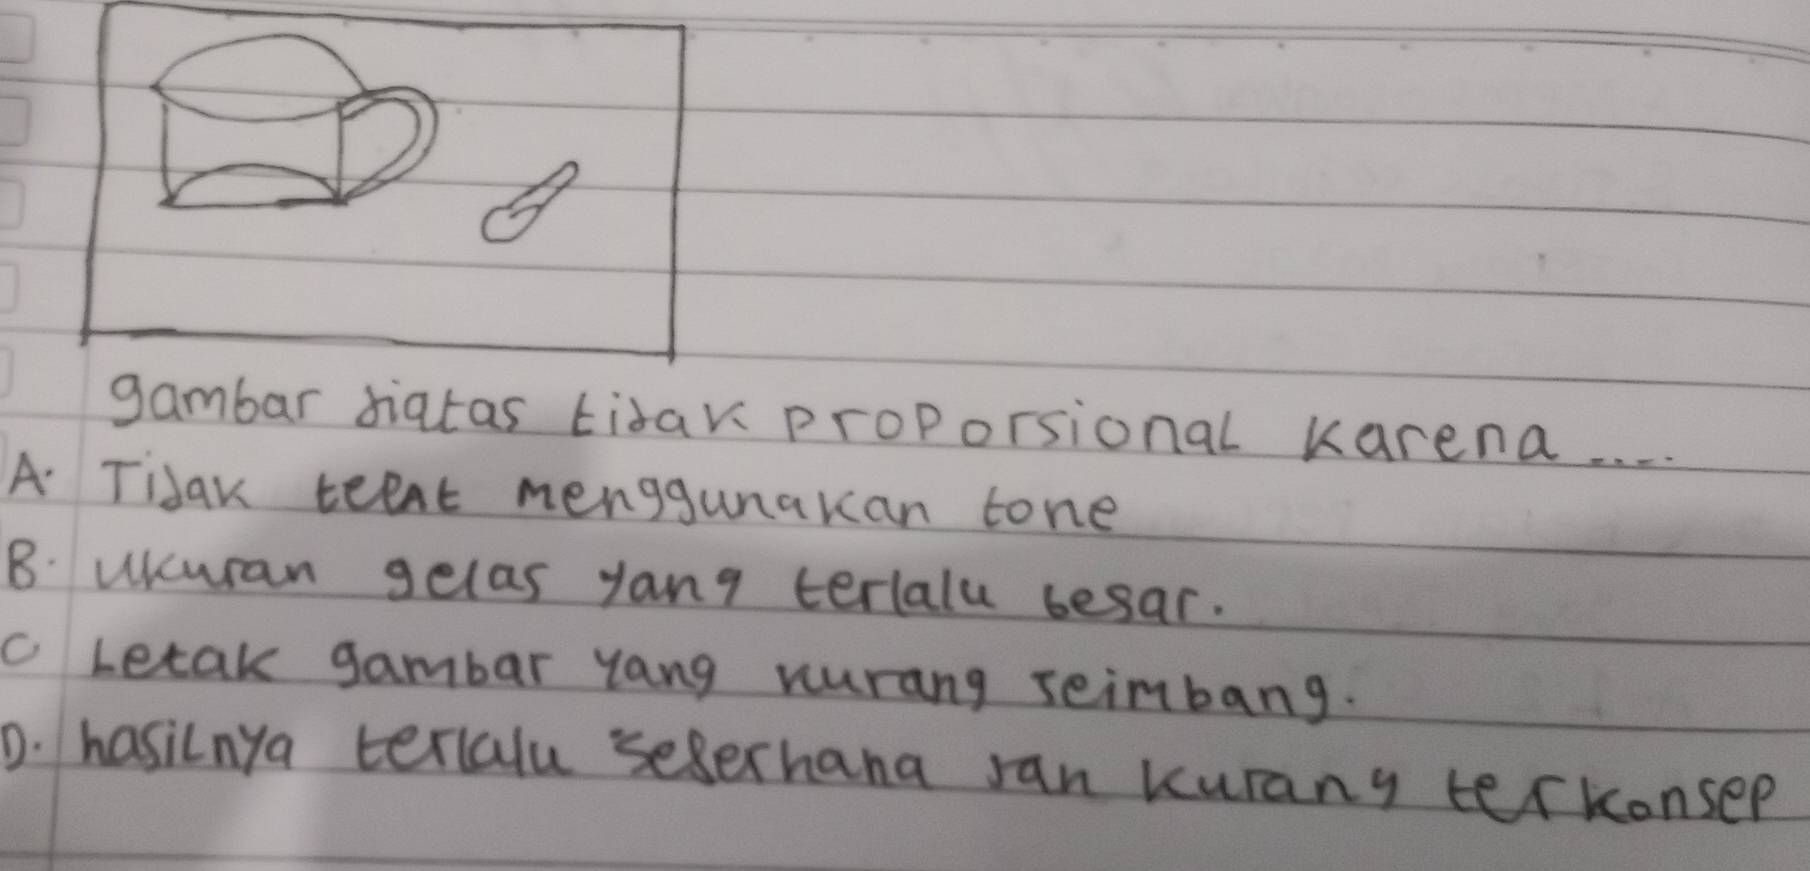 gambar diatas tidak proporsional karena ....
A. Tidak tepat menggunakan tone
B. Ukuran gelas yang terlalu besar.
C Letak gambar yang kurang seimbang.
D. hasilnya terlalu sederhana dan kurang terkonsep